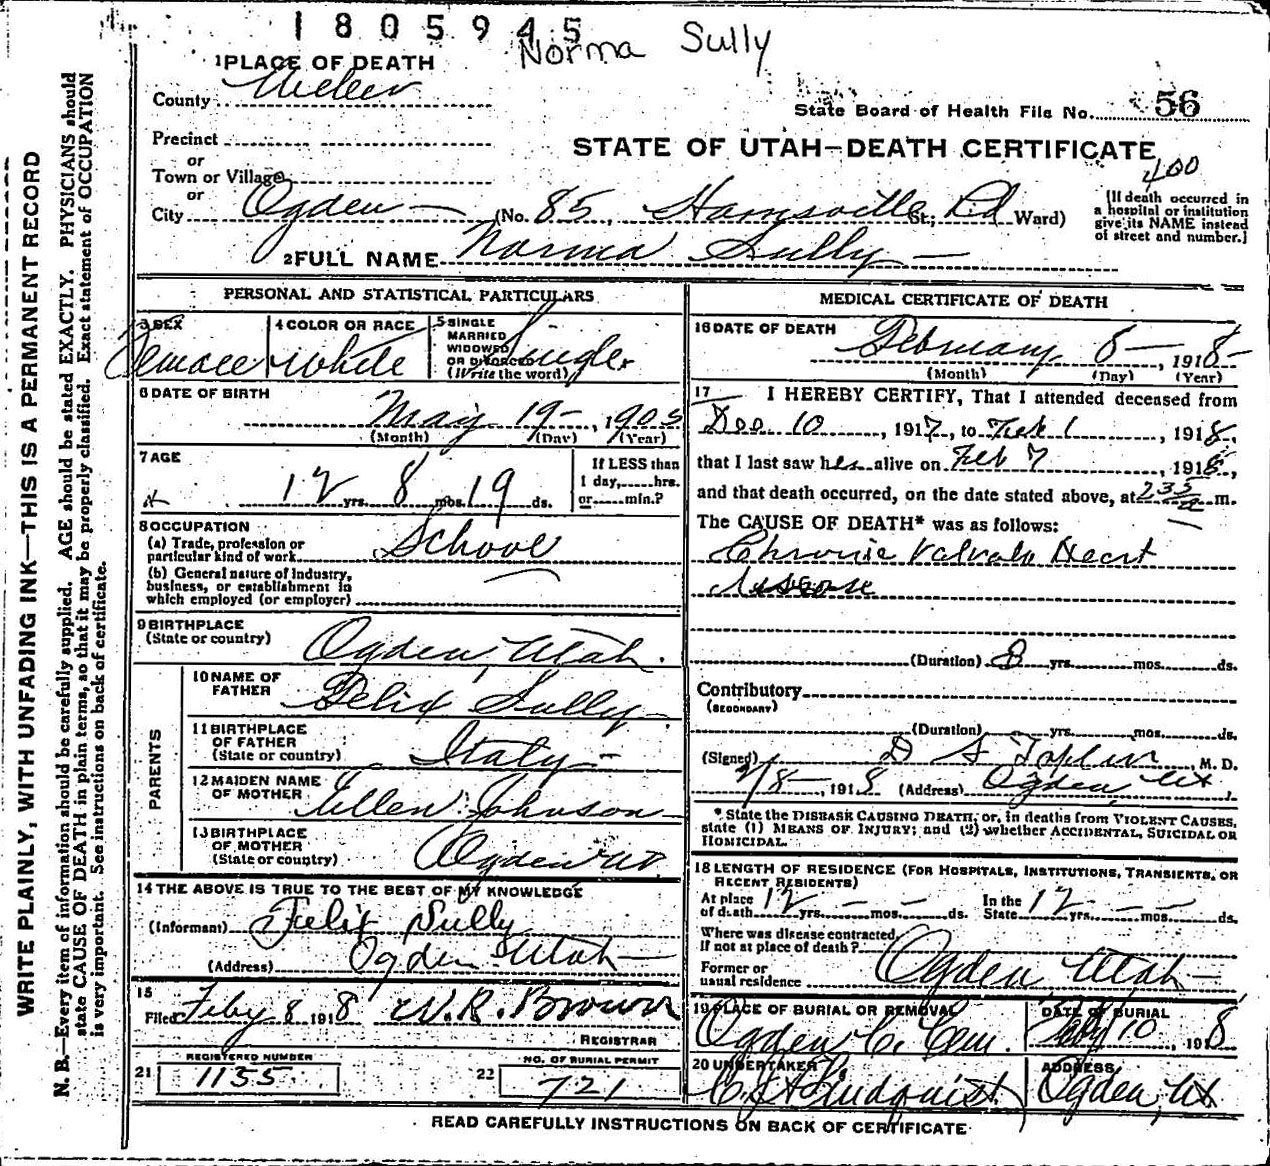 1805945
Norma Sully
1 PLACE OF DEATH
County Weber
State Board of Health File No. 56
Precinct
or
Town or Village
or
City Ogden (No. 85, Harrisville St.; Rd Ward)
STATE OF UTAH—DEATH CERTIFICATE
400
[If death occurred in
a hospital or institution
give its NAME instead
of street and number.]
2 FULL NAME Norma Sully
PERSONAL AND STATISTICAL PARTICULARS
3 SEX Female
4 COLOR OR RACE White
5 SINGLE
MARRIED
WIDOWED
OR DIVORCED
(Write the word) Single
6 DATE OF BIRTH
May 19, 1905
(Month) (Day) (Year)
7 AGE
12 yrs. 8 mos. 19 ds.
If LESS than
1 day, hrs.
or min.?
8 OCCUPATION
(a) Trade, profession or
particular kind of work School
(b) General nature of industry,
business, or establishment in
which employed (or employer)
9 BIRTHPLACE
(State or country) Ogden, Utah.
PARENTS
10 NAME OF
FATHER Felix Sully
11 BIRTHPLACE
OF FATHER
(State or country) Italy
12 MAIDEN NAME
OF MOTHER Ellen Johnson
13 BIRTHPLACE
OF MOTHER
(State or country) Ogden Ut.
14 THE ABOVE IS TRUE TO THE BEST OF MY KNOWLEDGE
(Informant) Felix Sully
(Address) Ogden Utah
15
Filed Feby 8 1918 W. R. Brown
REGISTRAR
21 REGISTERED NUMBER
1135
22 NO. OF BURIAL PERMIT
721
MEDICAL CERTIFICATE OF DEATH
16 DATE OF DEATH
February 8, 1918
(Month) (Day) (Year)
17 I HEREBY CERTIFY, That I attended deceased from
Dec 10, 1917, to Feb 1, 1918,
that I last saw her alive on Feb 7, 1918,
and that death occurred, on the date stated above, at 2 35 a m.
The CAUSE OF DEATH* was as follows:
Chronic Valvular Heart
disease
(Duration) 8 yrs. mos. ds.
Contributory
(SECONDARY)
(Duration) yrs. mos. ds.
(Signed) D S Toplin, M. D.
2/8, 1918 (Address) Ogden, Ut
* State the DISEASE CAUSING DEATH, or, in deaths from VIOLENT CAUSES,
state (1) MEANS OF INJURY; and (2) whether ACCIDENTAL, SUICIDAL OR
HOMICIDAL.
18 LENGTH OF RESIDENCE (FOR HOSPITALS, INSTITUTIONS, TRANSIENTS, OR
RECENT RESIDENTS)
At place
of death 12 yrs. mos. ds. In the
State 12 yrs. mos. ds.
Where was disease contracted,
if not at place of death?
Former or
usual residence Ogden, Utah
19 PLACE OF BURIAL OR REMOVAL
Ogden C. Cem.
DATE OF BURIAL
Feby 10, 1918
20 UNDERTAKER
C. J. A. Lindquist
ADDRESS
Ogden, Ut
READ CAREFULLY INSTRUCTIONS ON BACK OF CERTIFICATE
WRITE PLAINLY, WITH UNFADING INK—THIS IS A PERMANENT RECORD
N. B.—Every item of information should be carefully supplied. AGE should be stated EXACTLY. PHYSICIANS should
state CAUSE OF DEATH in plain terms, so that it may be properly classified. Exact statement of OCCUPATION
is very important. See instructions on back of certificate.